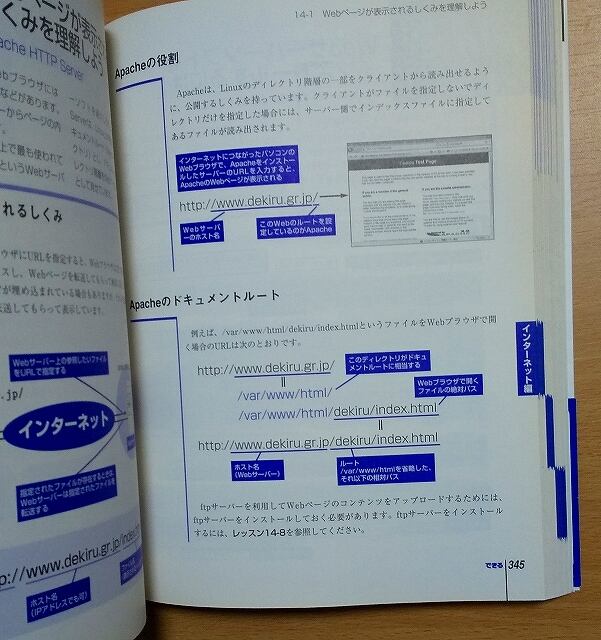 ページが表示
くみを理解しよう
ache HTTP Server
ebブラウザには
などがあります。
ーからページの内
す。
上で最も使われて
というWebサーバ
れるしくみ
ウザにURLを指定すると、Webブラウザは
スし、Webページを転送してもらって
が埋め込まれている場合もありますが、
送してもらって表示しています。
Webサーバー上の参照したいファイル
をURLで指定する
.jp/
インターネット
指定されたファイルが存在するときは、
Webサーバーは指定されたファイルを
転送する
p://www.dekiru.gr.jp/index.h
ホスト名
(IPアドレスでも可)
14-1 Webページが表示されるしくみを理解しよう
Apacheの役割
Apacheは、Linuxのディレクトリ階層の一部をクライアントから読み出せるよう
に、公開するしくみを持っています。クライアントがファイルを指定しないでディ
レクトリだけを指定した場合には、サーバー側でインデックスファイルに指定して
あるファイルが読み出されます。
インターネットにつながったパソコンの
Webブラウザで、Apacheをインストー
ルしたサーバーのURLを入力すると、
ApacheのWebページが表示される
http://www.dekiru.gr.jp/
Webサーバ
ーのホスト名
このWebのルートを設
定しているのがApache
Test Page
Apacheのドキュメントルート
例えば、/var/www/html/dekiru/index.htmlというファイルをWebブラウザで開
く場合のURLは次のとおりです。
http://www.dekiru.gr.jp/
このディレクトリがドキュ
メントルートに相当する
=
/var/www/html/
Webブラウザで開く
ファイルの絶対パス
/var/www/html/dekiru/index.html
=
http://www.dekiru.gr.jp/dekiru/index.html
ホスト名
(Webサーバー)
ルート
/var/www/htmlを省略した、
それ以下の相対パス
ftpサーバーを利用してWebページのコンテンツをアップロードするためには、
ftpサーバーをインストールしておく必要があります。ftpサーバーをインストール
するには、レッスン14-8を参照してください。
インターネット編
できる 345